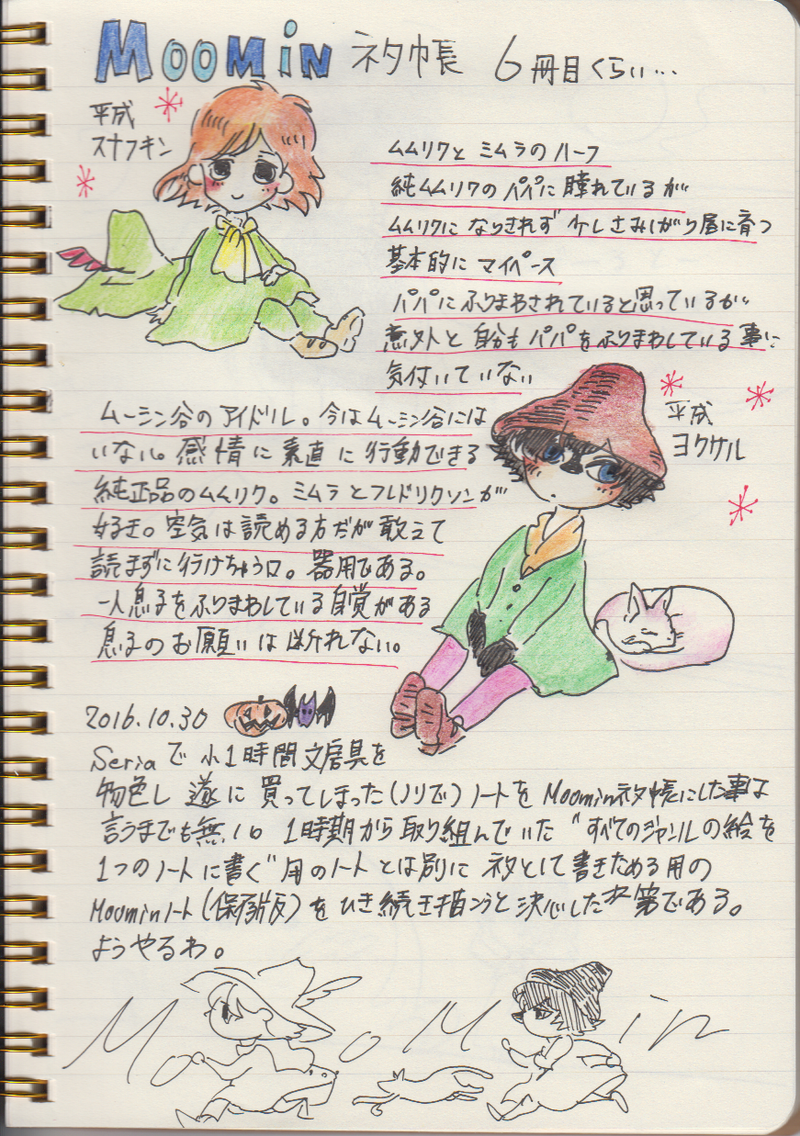 Moomin ネタ帳 6冊目くらい…
平成
スナフキン
ムムリクと ミムラのハーフ
純ムムリクのパパに憧れているが
ムムリクになりきれず 少しさみしがり屋に育つ
基本的に マイペース
パパにふりまわされていると思っているが
意外と 自分もパパをふりまわしている事に
気付いていない
平成
ヨクサル
ムーミン谷の アイドル。今はムーミン谷には
いない。感情に素直に行動できる
純正品のムムリク。ミムラとフレドリクソンが
好き。空気は読める方だが敢えて
読まずに行けちゃう口。器用である。
一人息子をふりまわしている自覚がある
息子のお願いは断れない。
2016.10.30
Seriaで 小1時間文房具を
物色し 遂に 買ってしまった(ノリで)ノートを Moominネタ帳にした事は
言うまでも無い。1時期から取り組んでいた "すべてのジャンルの絵を
1つのノートに書く"用のノートとは別に ネタとして書きためる用の
Moominノート(保存版)をひき続き描こうと決心した次第である。
ようやるわ。
MooMin